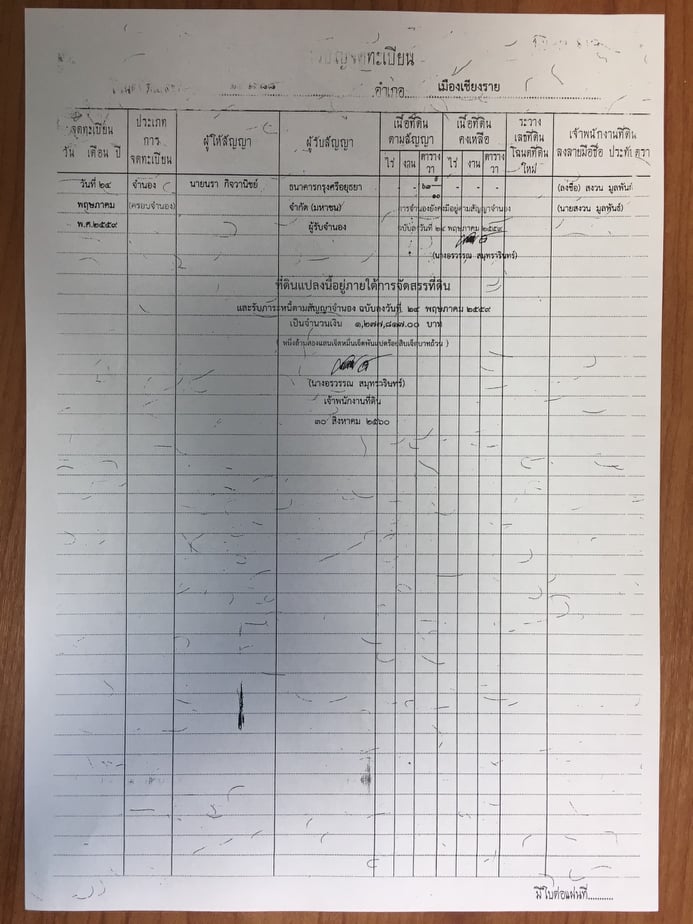 สารบัญจดทะเบียน
อำเภอ เมืองเชียงราย
จดทะเบียน
วัน เดือน ปี
ประเภท
การ
จดทะเบียน
ผู้ให้สัญญา
ผู้รับสัญญา
เนื้อที่ดิน
ตามสัญญา
ไร่ งาน ตาราง
วา
เนื้อที่ดิน
คงเหลือ
ไร่ งาน ตาราง
วา
ระวาง
เลขที่ดิน
โฉนดที่ดิน
ใหม่
เจ้าพนักงานที่ดิน
ลงลายมือชื่อ ประทับตรา
วันที่ ๒๔ จำนอง นายนรา กิจวานิชย์ ธนาคารกรุงศรีอยุธยา - - - - - (ลงชื่อ) สงวน มูลพันธ์
พฤษภาคม (ครอบจำนอง) จำกัด (มหาชน) การจำนองยังคงมีอยู่ตามสัญญาจำนอง (นายสงวน มูลพันธ์)
พ.ศ.๒๕๕๙ ผู้รับจำนอง ฉบับลงวันที่ ๒๔ พฤษภาคม ๒๕๕๙
(นางอรวรรณ สมุทรวรินทร์)
ที่ดินแปลงนี้อยู่ภายใต้การจัดสรรที่ดิน
และรับภาระหนี้ตามสัญญาจำนอง ฉบับลงวันที่ ๒๔ พฤษภาคม ๒๕๕๙
เป็นจำนวนเงิน ๑,๒๗๗,๘๑๗.๐๐ บาท
( หนึ่งล้านสองแสนเจ็ดหมื่นเจ็ดพันแปดร้อยสิบเจ็ดบาทถ้วน )
(นางอรวรรณ สมุทรวรินทร์)
เจ้าพนักงานที่ดิน
๓๐ สิงหาคม ๒๕๖๐
มีใบต่อแผ่นที่...........